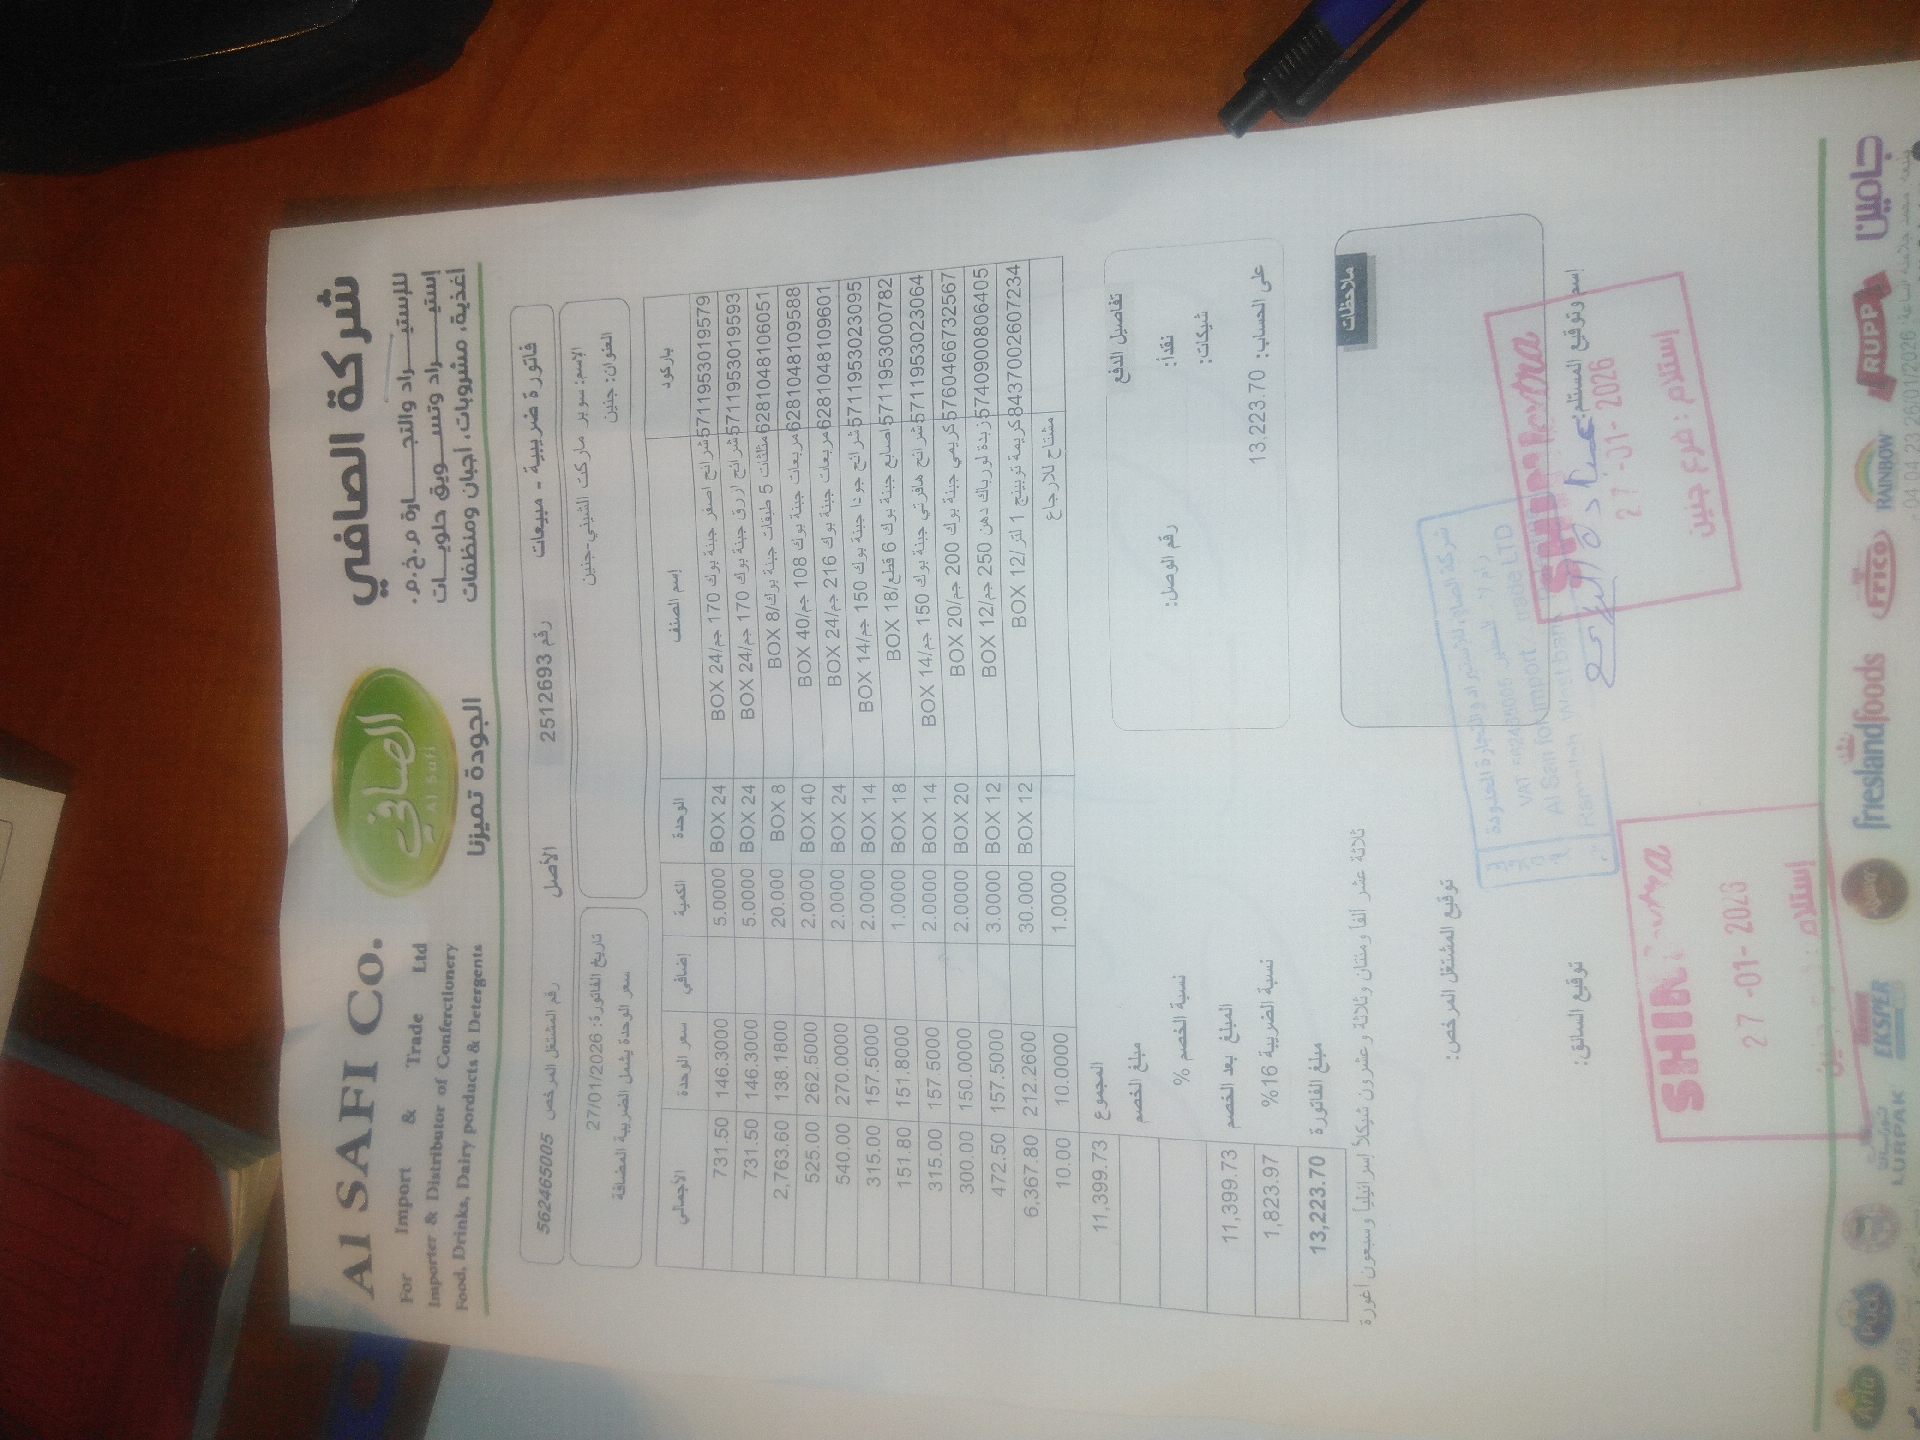 Al SAFI Co.
For Import & Trade Ltd
Importer & Distributor of Confectionery
Food, Drinks, Dairy porducts & Detergents
الصافي
Al Safi
الجودة تميزنا
شركة الصافي
للإستيـــراد والتجـــارة م.خ.م.
إستيـــراد وتســـويق حلويـــات
أغذية، مشروبات، أجبان ومنظفات
فاتورة ضريبية - مبيعات رقم 2512693 الأصل رقم المشتغل المرخص 562465005
الإسم: سوبر ماركت الشيني-جنين
العنوان: جنين
تاريخ الفاتورة: 27/01/2026
سعر الوحدة يشمل الضريبة المضافة
باركود إسم الصنف الوحدة الكمية إضافي سعر الوحدة الأجمالي
5711953019579 شرائح اصفر جبنة بوك 170 جم/24 BOX BOX 24 5.0000 146.3000 731.50
5711953019593 شرائح ازرق جبنة بوك 170 جم/24 BOX BOX 24 5.0000 146.3000 731.50
6281048106051 مثلثات 5 طبقات جبنة بوك/8 BOX BOX 8 20.000 138.1800 2,763.60
6281048109588 مربعات جبنة بوك 108 جم/40 BOX BOX 40 2.0000 262.5000 525.00
6281048109601 مربعات جبنة بوك 216 جم/24 BOX BOX 24 2.0000 270.0000 540.00
5711953023095 شرائح جودا جبنة بوك 150 جم/14 BOX BOX 14 2.0000 157.5000 315.00
5711953000782 اصابع جبنة بوك 6 قطع/18 BOX BOX 18 1.0000 151.8000 151.80
5711953023064 شرائح هافرتي جبنة بوك 150 جم/14 BOX BOX 14 2.0000 157.5000 315.00
5760466732567 كريمي جبنة بوك 200 جم/20 BOX BOX 20 2.0000 150.0000 300.00
5740900806405 زبدة لورباك دهن 250 جم/12 BOX BOX 12 3.0000 157.5000 472.50
8437002607234 كريمة توبينج 1 لتر/12 BOX BOX 12 30.000 212.2600 6,367.80
مشتاح للارجاع 1.0000 10.0000 10.00
المجموع 11,399.73
مبلغ الخصم
نسبة الخصم %
المبلغ بعد الخصم 11,399.73
نسبة الضريبة 16% 1,823.97
مبلغ الفاتورة 13,223.70
تفاصيل الدفع
نقدا:
رقم الوصل:
شيكات:
على الحساب: 13,223.70
ثلاثة عشر ألفا ومئتان وثلاثة وعشرون شيكلاً إسرائيلياً وسبعون اغورة
ملاحظات
توقيع المشتغل المرخص:
توقيع السائق:
إسم وتوقيع المستلم:
27-01-2026
إستلام: فرع جنين
27-01-2026
إستلام:
Arla
Puck
LURPAK
EKSPER
frieslandfoods
FRICO
RAINBOW
RUPP
جامين
04:04:23 26/01/2026